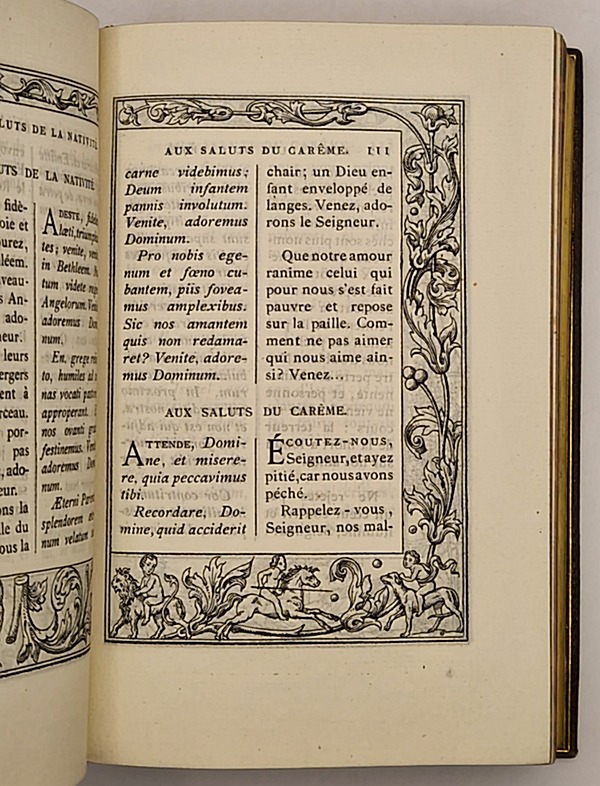 LUTS DE LA NATIVITÉ
UTS DE LA NATIVITÉ
fidè-
oie et
ourez,
léem.
veau-
s An-
ado-
neur.
leurs
ergers
ent à
rceau.
por-
pas
, ado-
eur.
ons la
le du
ous la
ADESTE, fide
læti, triumpha
tes; venite, ven
in Bethleem. N
tum videte reg
Angelorum. Veni
adoremus Do
num.
En, grege reli
to, humiles ad
nas vocati pasto
approperant.
nos ovanti gra
festinemus. Ven
adoremus Dom
num.
Æterni Paren
splendorem æt
num velatum
AUX SALUTS DU CARÊME. III
carne videbimus;
Deum infantem
pannis involutum.
Venite, adoremus
Dominum.
Pro nobis ege-
num et fœno cu-
bantem, piis fovea-
mus amplexibus.
Sic nos amantem
quis non redama-
ret? Venite, adore-
mus Dominum.
chair; un Dieu en-
fant enveloppé de
langes. Venez, ado-
rons le Seigneur.
Que notre amour
ranime celui qui
pour nous s'est fait
pauvre et repose
sur la paille. Com-
ment ne pas aimer
qui nous aime ain-
si? Venez...
AUX SALUTS DU CARÊME.
ATTENDE, Domi-
ne, et misere-
re, quia peccavimus
tibi.
Recordare, Do-
mine, quid acciderit
ÉCOUTEZ-NOUS,
Seigneur, et ayez
pitié, car nous avons
péché...
Rappelez-vous,
Seigneur, nos mal-